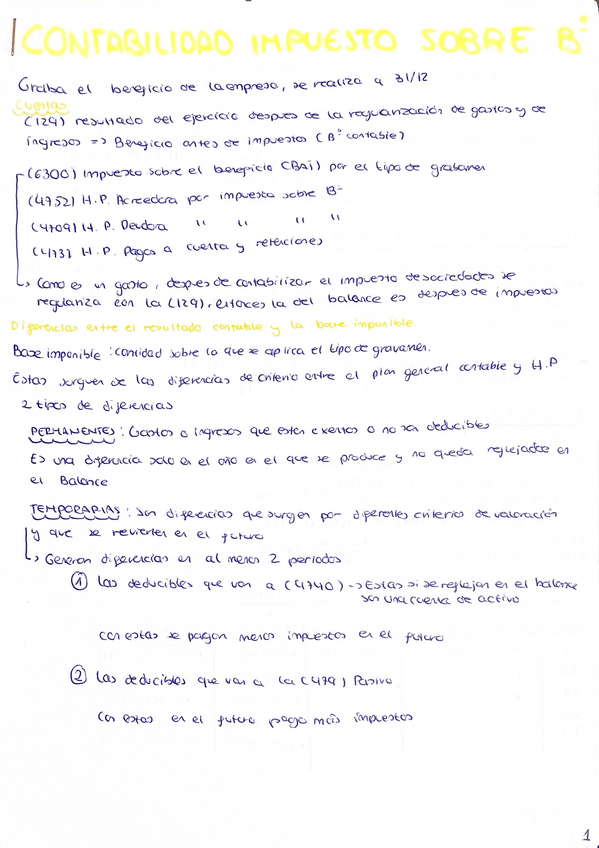 CONTABILIDAD IMPUESTO SOBRE Bº
Graba el beneficio de la empresa, se realiza a 31/12
Cuentas
(129) resultado del ejercicio despues de la regularización de gastos y de
ingresos => Beneficio antes de impuestos (Bº contable)
(6300) Impuesto sobre el beneficio (BAi) por el tipo de grabamen
(4752) H.P. Acreedora por impuesto sobre Bº
(4709) H.P. Deudora " " " "
(473) H.P. Pagos a cuenta y retenciones
↳ Como es un gasto, despues de contabilizar el impuesto de sociedades se
regulariza con la (129), entonces la del balance es despues de impuestos
Diferencias entre el resultado contable y la base imponible.
Base imponible: cantidad sobre lo que se aplica el tipo de gravamen.
Estas surguen de las diferencias de criterio entre el plan general contable y H.P
2 tipos de diferencias
PERMANENTES: Gastos o ingresos que estan exentos o no son deducibles
Es una diferencia solo en el año en el que se produce y no queda reflejados en
el Balance
TEMPORARIAS: son diferencias que surgen por diferentes criterios de valoración
y que se revierten en el futuro
↳ Generan diferencias en al menos 2 periodos
① Las deducibles que van a (4740) -> Estas si se reflejan en el balance
son una cuenta de activo
con estas se pagan menos impuestos en el futuro
② Las deducibles que van a la (479) Pasivo.
Con estas en el futuro pago más impuestos
1